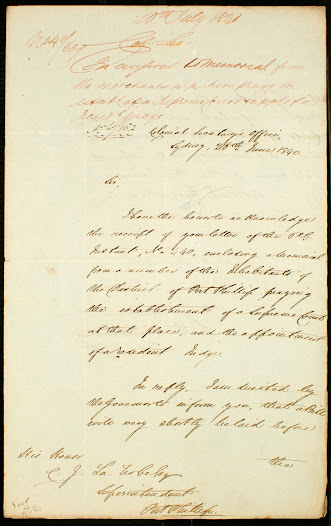 10th July 1840
Col: Sec
In answer to Memorial from
the merchants &c here praying
establ. of a Supreme Court & appt of a
Resdt Judge
No. 40/152
Colonial Secretary's Office,
Sydney, 26th June 1840.
Sir,
I have the honor to acknowledge
the receipt of your letter of the
Instant, No 40, enclosing a Memorial
from a number of the Inhabitants of
the District of Port Phillip praying
the establishment of a Supreme Court
at that place, and the appointment
of a resident Judge.
In reply, I am directed by
the Governor to inform you, that a Bill
will very shortly be laid before
the
His Honor
C. J. La Trobe Esq
Superintendent
Port Phillip.